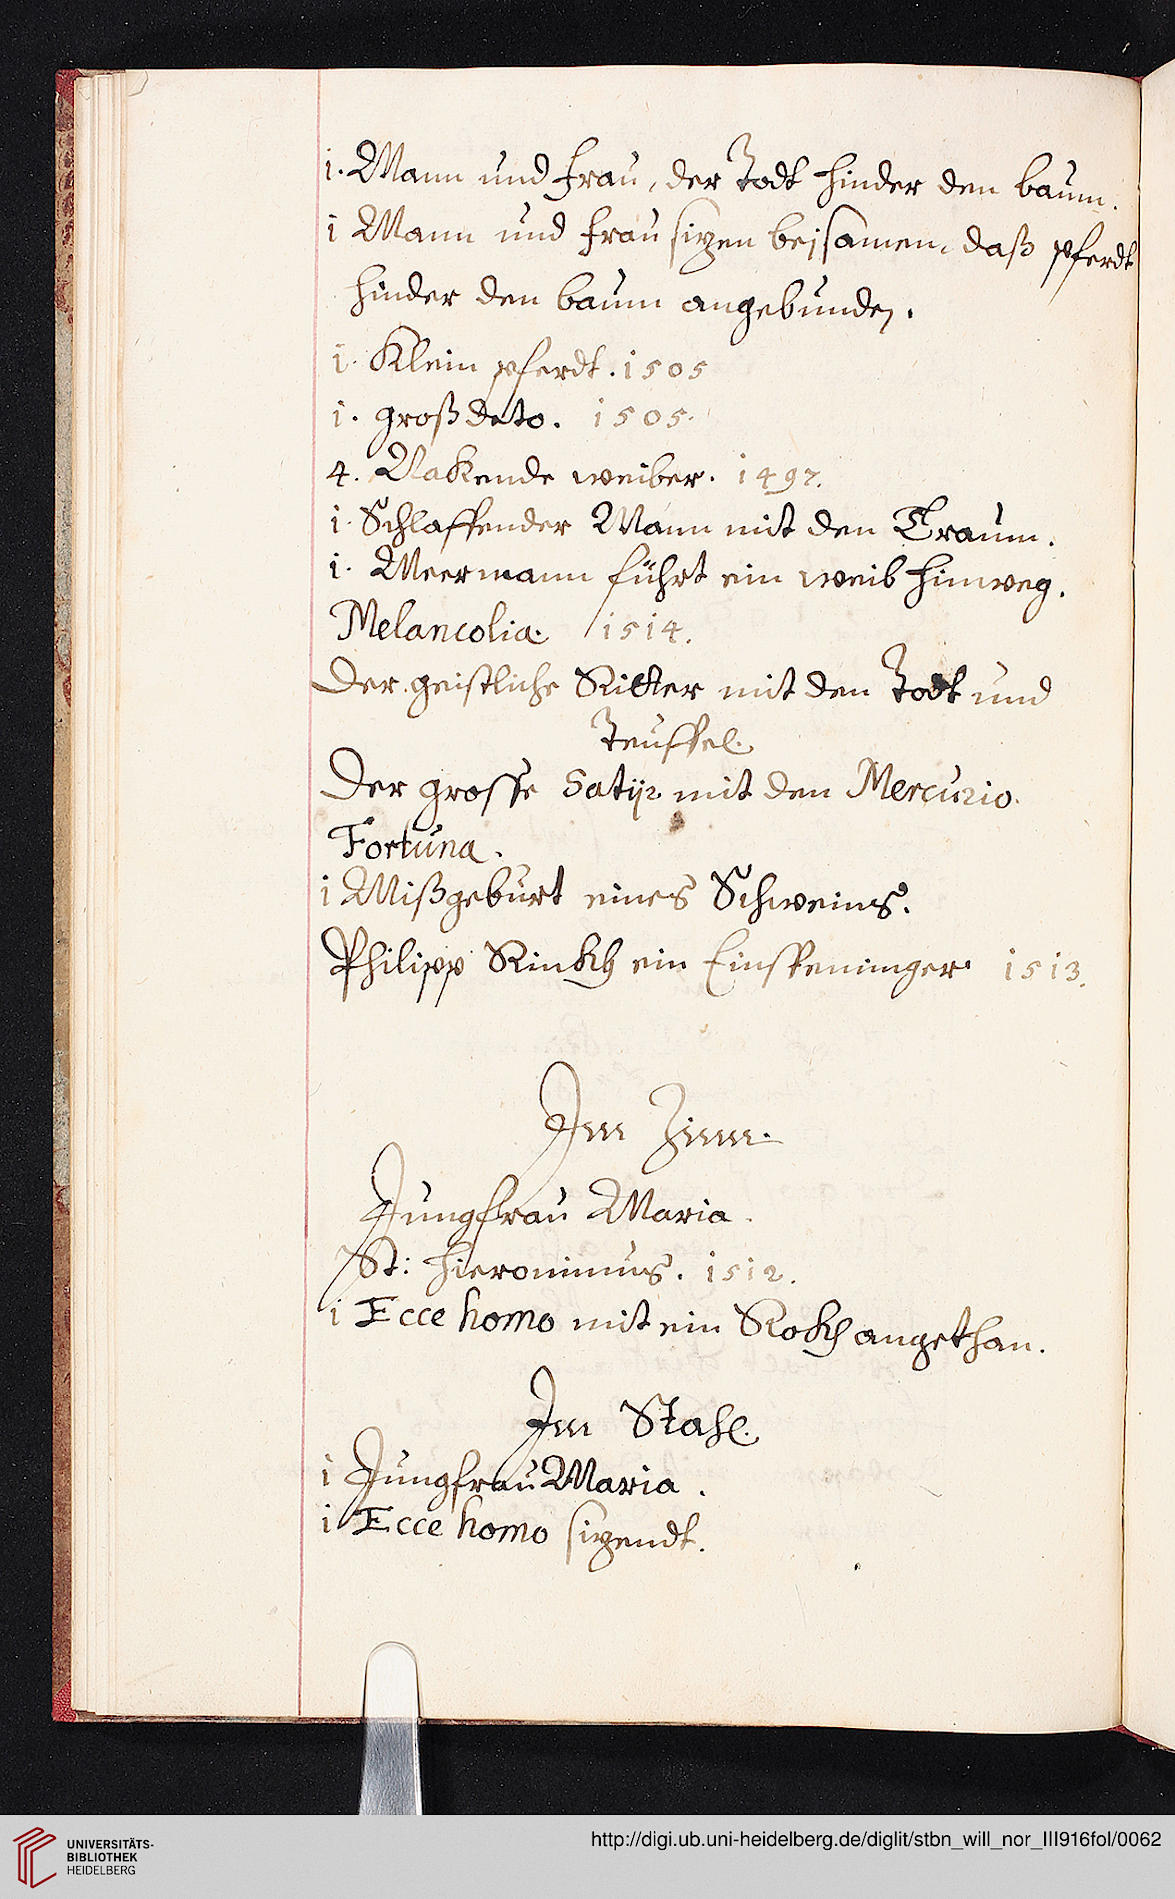 1. Mann und Frau, der Todt hinder den baum.
1 Mann und Frau sizen beysamen, daß pferdt
hinder den baum angebunden.
1. Klein pferdt. 1505
1. groß deto. 1505.
4. Nakende weiber. 1497.
1. Schlaffender Mann mit den Traum.
1. Meermann führt ein weib hinweg.
Melancolia. 1514.
Der geistliche Ritter mit den Todt und
Teuffel.
Der grosse Satyr mit den Mercurio.
Fortuna.
1 Mißgeburt eines Schweins.
Philipp Rinkh ein Einspeninger 1513.
Im Zinn.
Jungfrau Maria.
St: Hieronimus. 1512.
1 Ecce homo mit ein Rokh angethan.
Im Stahl.
1 Jungfrau Maria.
1 Ecce homo sizendt.
UNIVERSITÄTS-
BIBLIOTHEK
HEIDELBERG
http://digi.ub.uni-heidelberg.de/diglit/stbn_will_nor_III916fol/0062